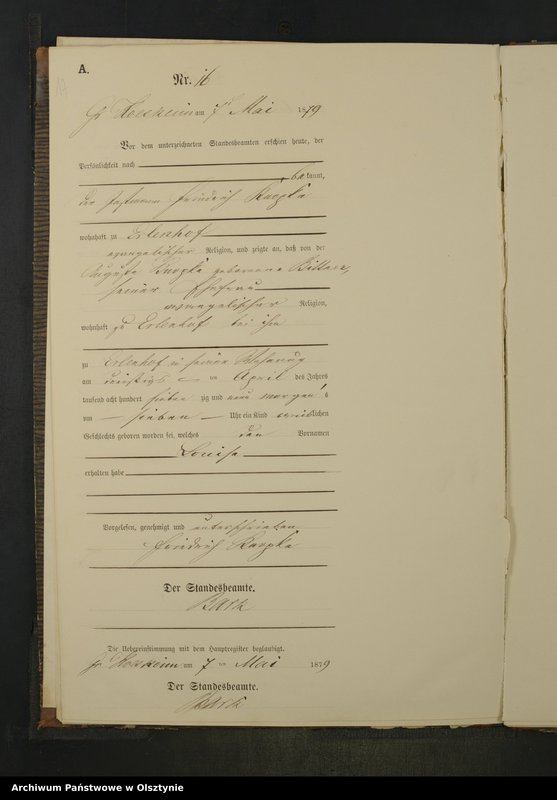 A.
Nr. 16
am 7 Mai 1879
Vor dem unterzeichneten Standesbeamten erschien heute, der
Persönlichkeit nach
bekannt,
der Friedrich
wohnhaft zu Erlenhof
evangelischer Religion, und zeigte an, daß von der
Auguste geborene
seiner Ehefrau
evangelischer Religion,
wohnhaft zu Erlenhof bei ihm
zu Erlenhof in seiner Wohnung
am ten April des Jahres
tausend acht hundert sieben zig und neun morgens
um sieben Uhr ein Kind weiblichen
Geschlechts geboren worden sei, welches den Vornamen
Louise
erhalten habe
Vorgelesen, genehmigt und unterschrieben
Friedrich
Der Standesbeamte.
Die Uebereinstimmung mit dem Hauptregister beglaubigt.
am 7 ten Mai 1879
Der Standesbeamte.
Archiwum Państwowe w Olsztynie